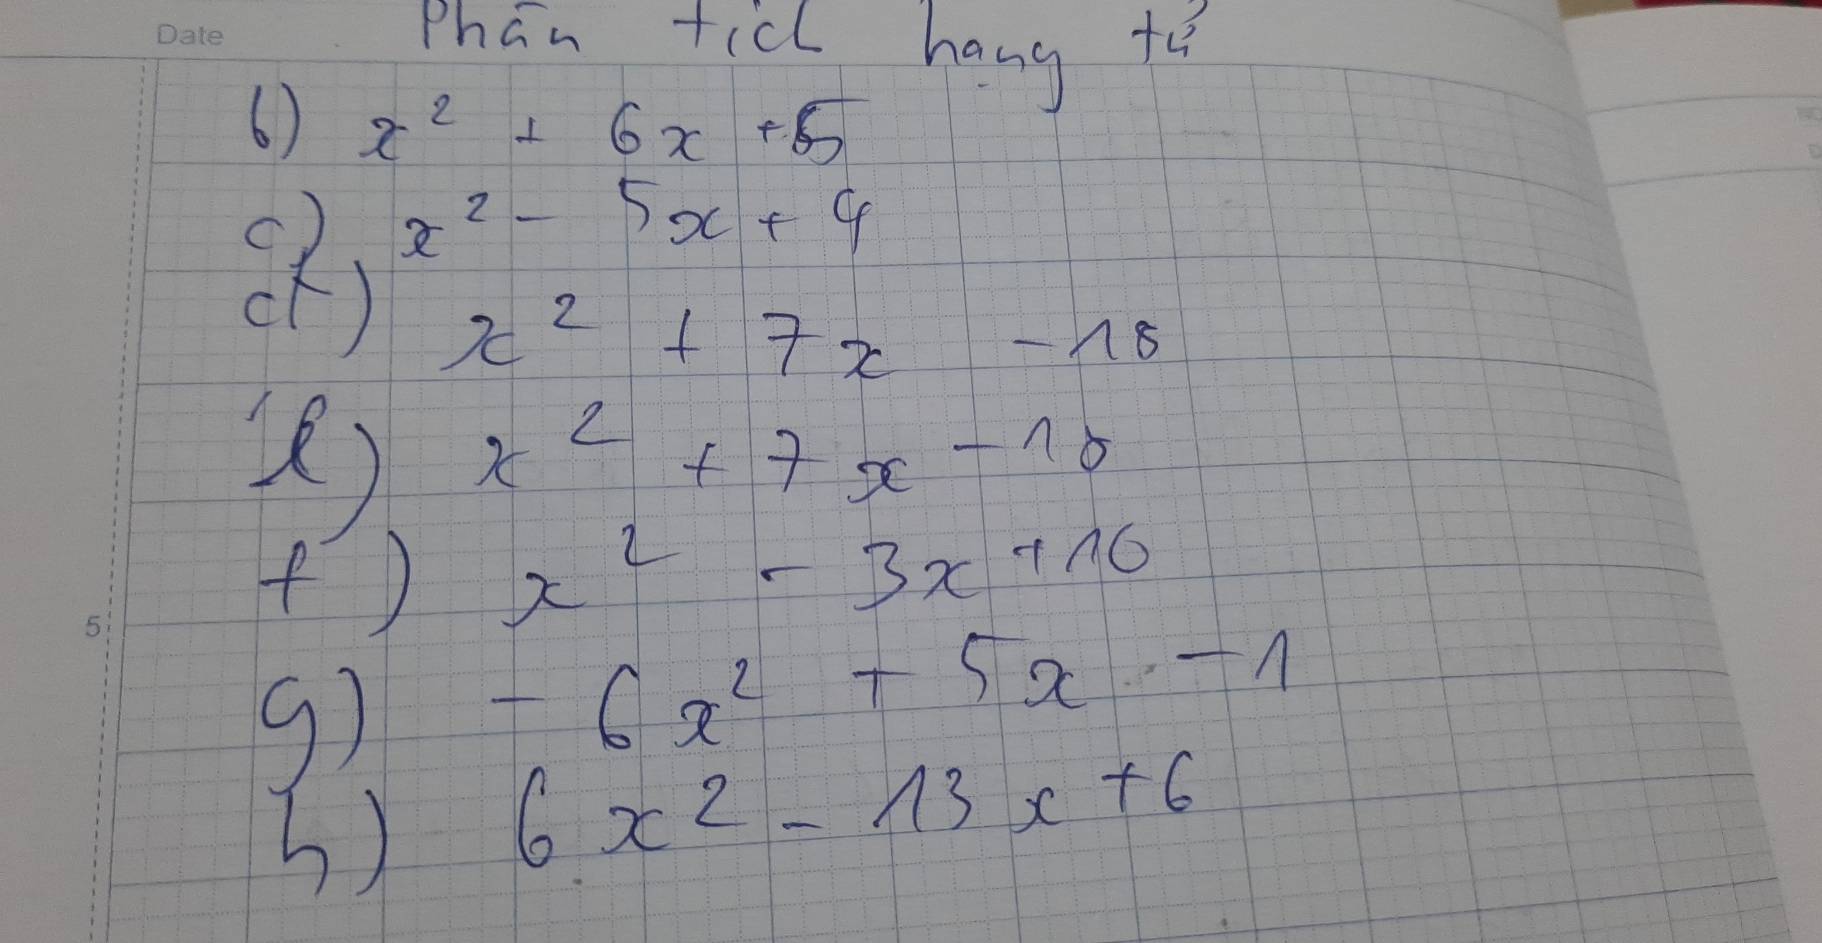 Date
Phân tích hạng tử
b) x² + 6x + 5
c) x² - 5x + 4
d) x² + 7x - 18
e) x² + 7x - 18
f) x² - 3x + 10
5
g) - 6x² + 5x - 1
h) 6x² - 13x + 6